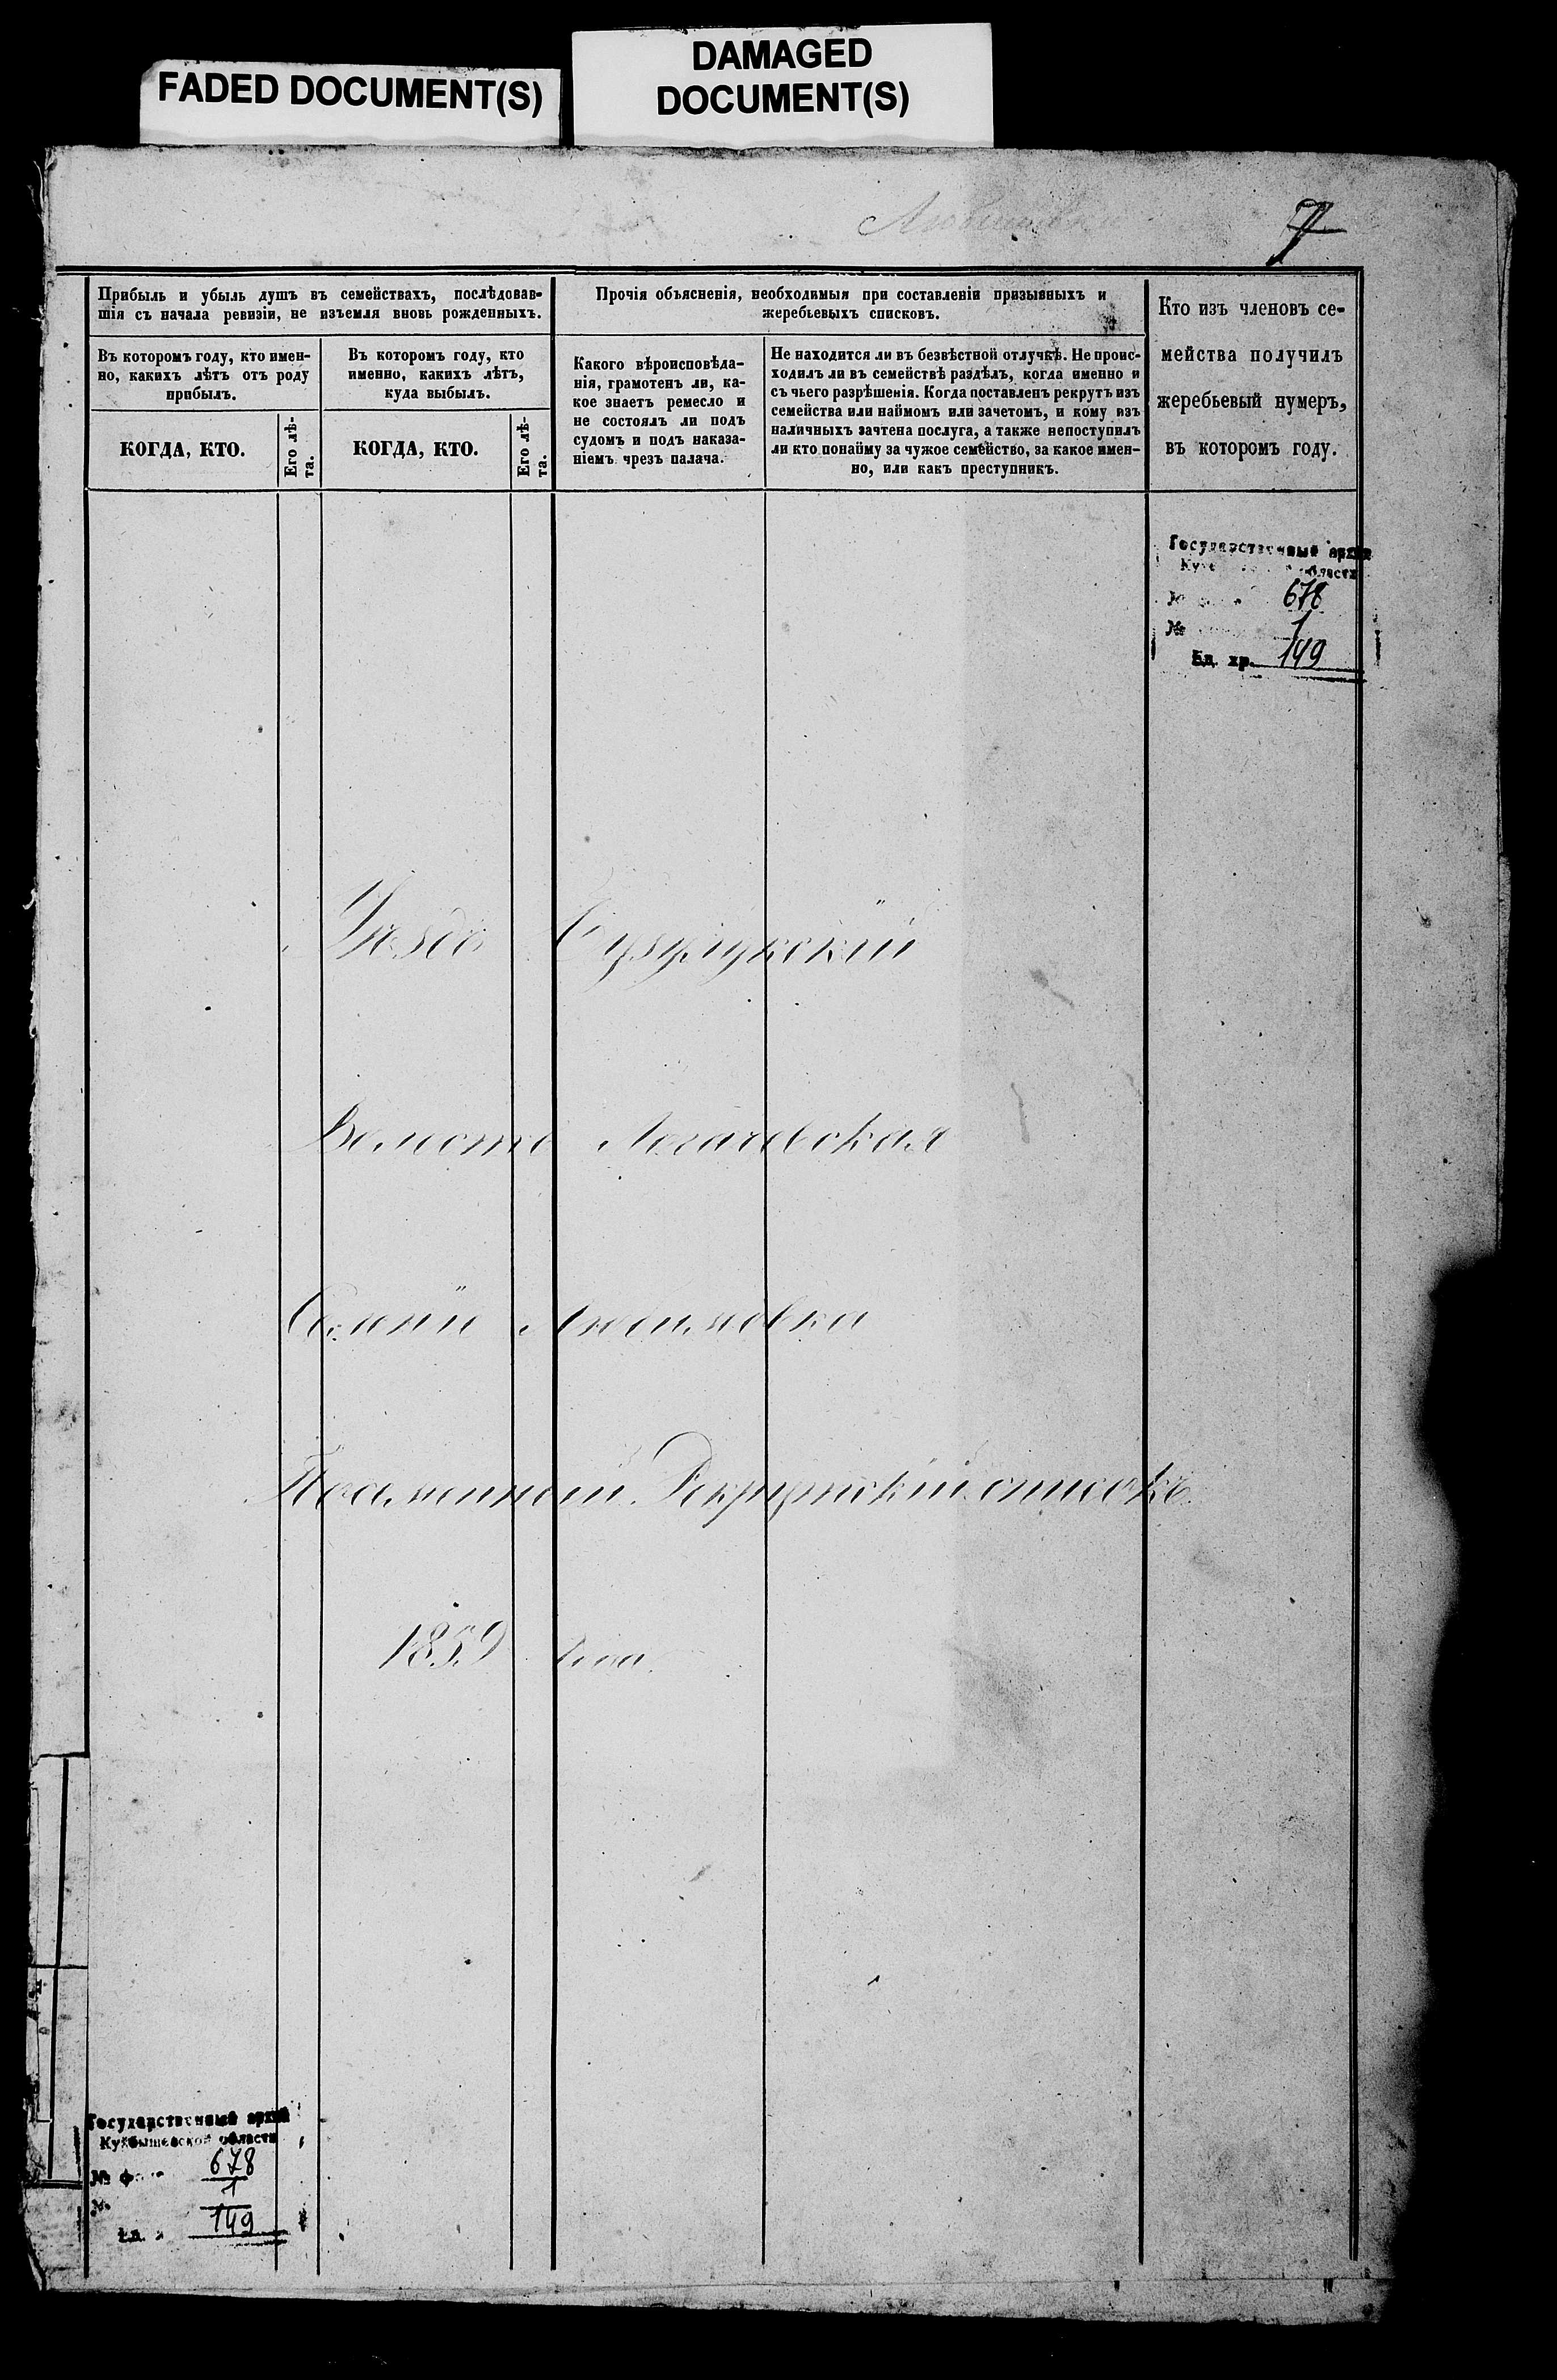 FADED DOCUMENT(S)
DAMAGED
DOCUMENT(S)
7
Прибыль и убыль душъ въ семействахъ, послѣдовав-
шія съ начала ревизіи, не изъемля вновь рожденныхъ.
Въ которомъ году, кто имен-
но, какихъ лѣтъ отъ роду
прибылъ.
КОГДА, КТО.
Его лѣ-
та.
Въ которомъ году, кто
именно, какихъ лѣтъ,
куда выбылъ.
КОГДА, КТО.
Его лѣ-
та.
Прочія объясненія, необходимыя при составленіи призывныхъ и
жеребьевыхъ списковъ.
Какого вѣроисповѣда-
нія, грамотенъ ли, ка-
кое знаетъ ремесло и
не состоялъ ли подъ
судомъ и подъ наказа-
ніемъ чрезъ палача.
Не находится ли въ безвѣстной отлучкѣ. Не проис-
ходилъ ли въ семействѣ раздѣлъ, когда именно и
съ чьего разрѣшенія. Когда поставленъ рекрутъ изъ
семейства или наймомъ или зачетомъ, и кому изъ
наличныхъ зачтена послуга, а также непоступилъ
ли кто понайму за чужое семейство, за какое имен-
но, или какъ преступникъ.
Кто изъ членовъ се-
мейства получилъ
жеребьевый нумеръ,
въ которомъ году.
Государственный архив
области
678
№ 1
Ед. хр. 149
Уѣздъ Бузулукскій
Волость Логачевская
Селеніе Любимовка
Посемейный Рекрутскій списокъ
1859 года.
Государственный архив
Куйбышевской области
№ 678
№ 1
Ед. 149